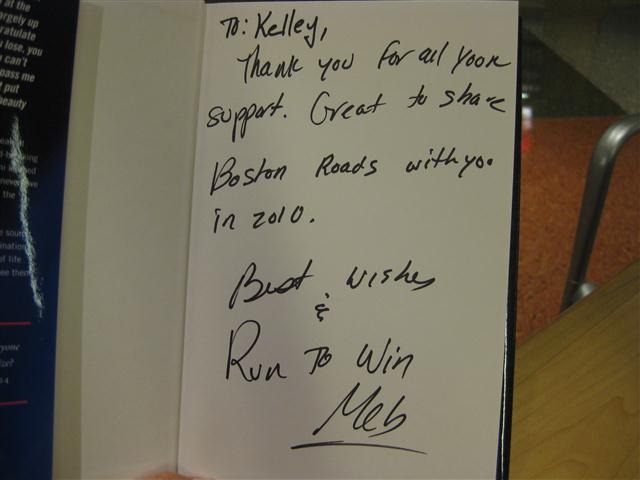 at the
argely up
ratulate
lose, you
can't
pass me
put
beauty
the
of life
ee them
To: Kelley,
Thank you for all your
support. Great to share
Boston Roads with you
in 2010.
Best wishes
&
Run To Win
Meb